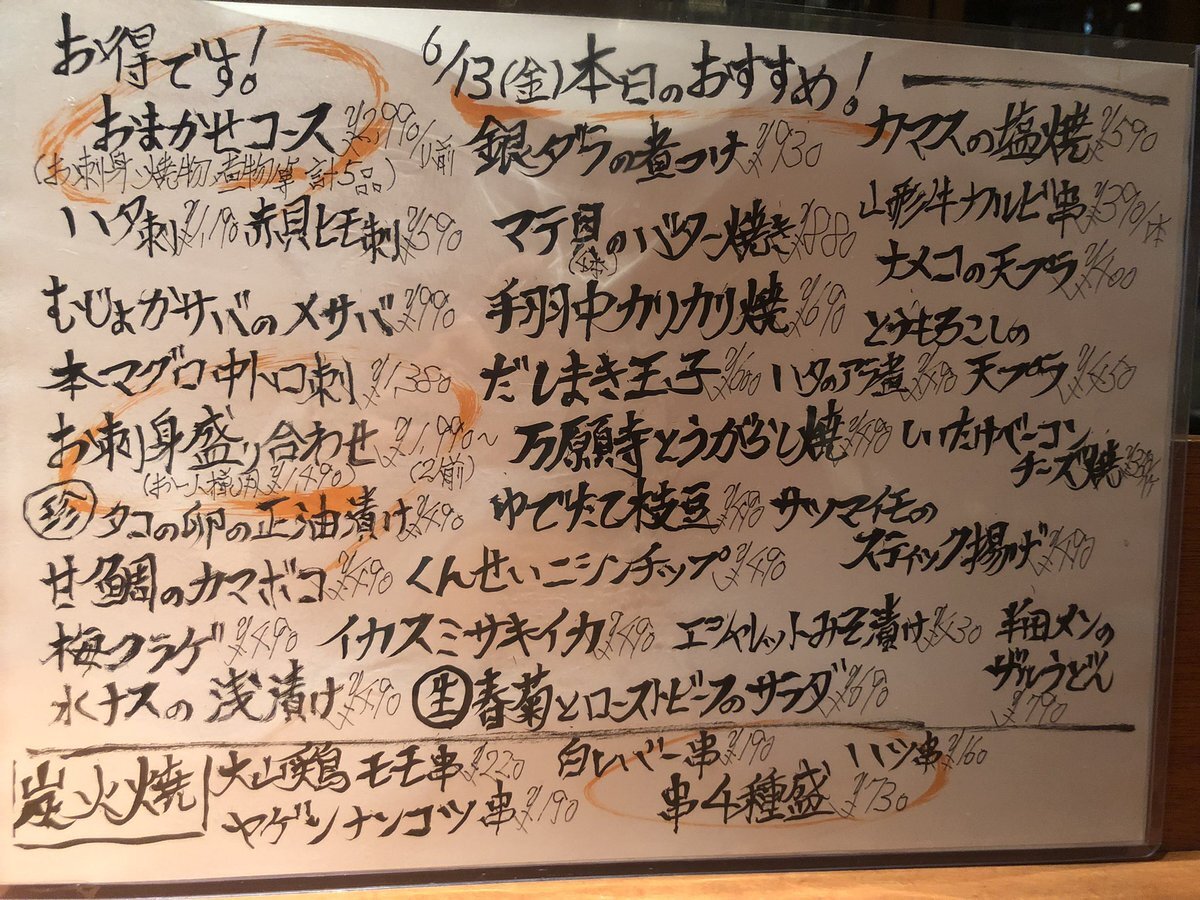 お得です!
おまかせコース ¥2,990/1人前
(お刺身、焼物、煮物等 計5品)
ハタ刺 ¥1,190 赤貝ヒモ刺 ¥590
むじょかサバのメサバ ¥990
本マグロ中トロ刺 ¥1,380
お刺身盛り合わせ ¥1,990~
(お一人様用 ¥1,490) (2人前)
珍 タコの卵の正油漬け ¥490
甘鯛のカマボコ ¥490 くんせいニシンチップ ¥490
梅クラゲ ¥490 イカスミサキイカ ¥490 エシャレットみそ漬け ¥430
水ナスの浅漬け ¥490 生 春菊とローストビーフのサラダ ¥690
6/13(金)本日のおすすめ!
銀ダラの煮つけ ¥930
マテ貝のバター焼き ¥880
(4本)
手羽中カリカリ焼 ¥690
だしまき玉子 ¥600 ハタのアラ煮 ¥490
万願寺とうがらし焼 ¥490
ゆでたて枝豆 ¥490
カマスの塩焼 ¥590
山形牛カルビ串 ¥390/本
ナメコの天プラ ¥400
とうもろこしの
天プラ ¥450
しいたけベーコン
チーズ焼
サツマイモの
スティック揚げ ¥490
半田メンの
ザルうどん
¥790
炭火焼
大山鶏モモ串 ¥220 白レバー串 ¥190 ハツ串 ¥160
ヤゲンナンコツ串 ¥190 串4種盛 ¥730